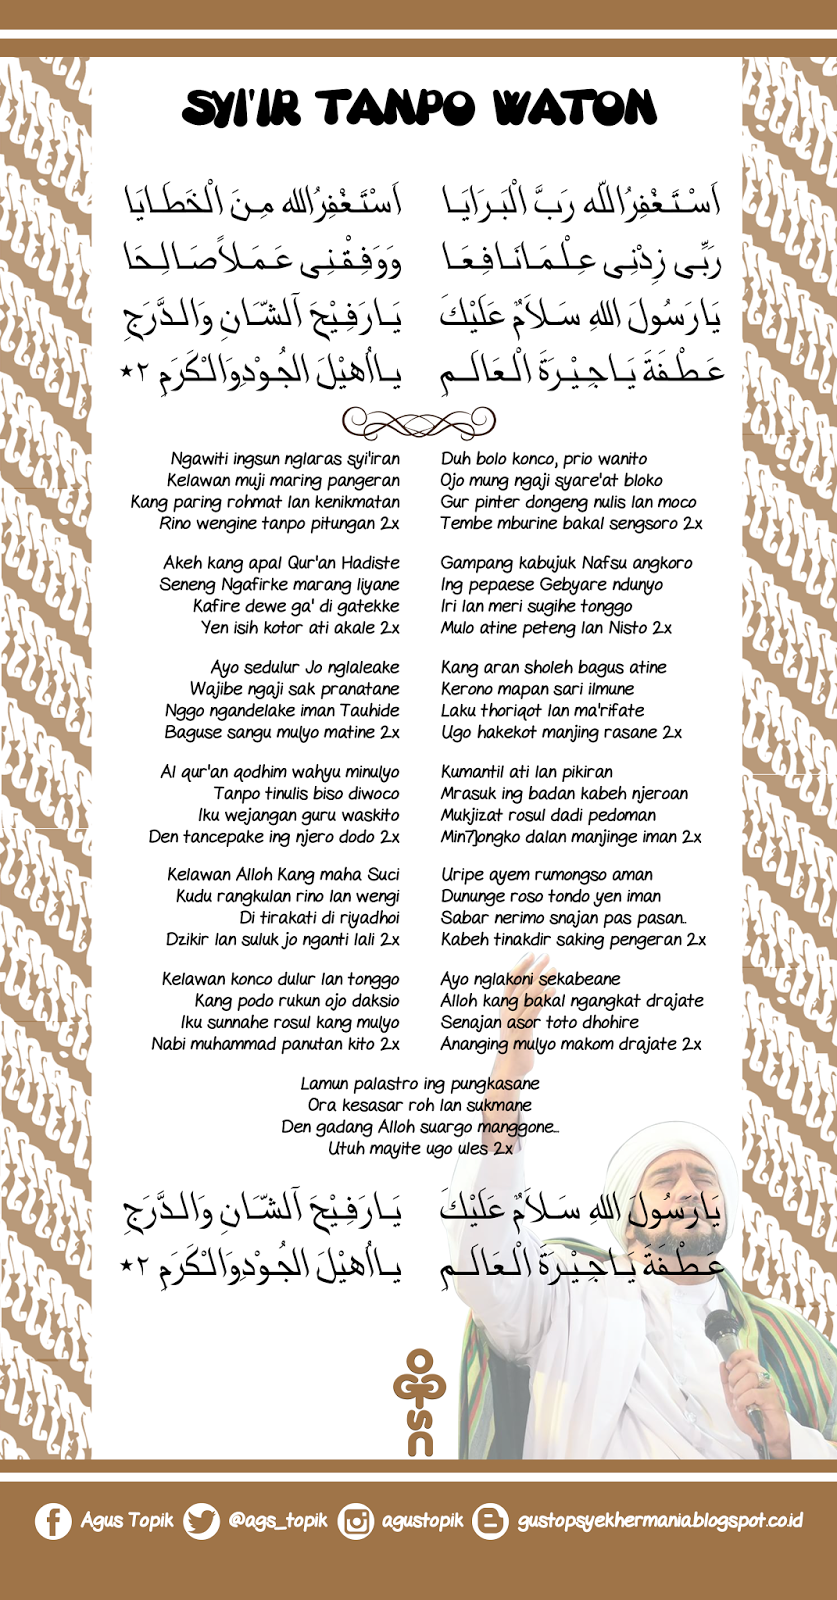 SYI'IR TANPO WATON
اَسْتَغْفِرُاللّه رَبَّ الْبَرَايَا اَسْتَغْفِرُالله مِنَ الْخَطَايَا
رَبِّى زِدْنِى عِلْمَانَافِعَا وَوَفِقْنِى عَمَلاًصَالِحَا
يَارَسُولَ اللهِ سَلاَمٌ عَلَيْكَ يَارَفِيْحَ آلشّانِ وَالدَّرَجِ
عَطْفَةَ يَاجِيْرَةَ الْعَالَمِ يااُهيْلَ الجُوْدِوَالْكَرَمِ ٢*
Ngawiti ingsun nglaras syi'iran
Kelawan muji maring pangeran
Kang paring rohmat lan kenikmatan
Rino wengine tanpo pitungan 2x
Duh bolo konco, prio wanito
Ojo mung ngaji syare'at bloko
Gur pinter dongeng nulis lan moco
Tembe mburine bakal sengsoro 2x
Akeh kang apal Qur'an Hadiste
Seneng Ngafirke marang liyane
Kafire dewe ga' di gatekke
Yen isih kotor ati akale 2x
Gampang kabujuk Nafsu angkoro
Ing pepaese Gebyare ndunyo
Iri lan meri sugihe tonggo
Mulo atine peteng lan Nisto 2x
Ayo sedulur Jo nglaleake
Wajibe ngaji sak pranatane
Nggo ngandelake iman Tauhide
Baguse sangu mulyo matine 2x
Kang aran sholeh bagus atine
Kerono mapan sari ilmune
Laku thoriqot lan ma'rifate
Ugo hakekot manjing rasane 2x
Al qur'an qodhim wahyu minulyo
Tanpo tinulis biso diwoco
Iku wejangan guru waskito
Den tancepake ing njero dodo 2x
Kumantil ati lan pikiran
Mrasuk ing badan kabeh njeroan
Mukjizat rosul dadi pedoman
Min7)ongko dalan manjinge iman 2x
Kelawan Alloh Kang maha Suci
Kudu rangkulan rino lan wengi
Di tirakati di riyadhoi
Dzikir lan suluk jo nganti lali 2x
Uripe ayem rumongso aman
Dununge roso tondo yen iman
Sabar nerimo snajan pas pasan..
Kabeh tinakdir saking pengeran 2x
Kelawan konco dulur lan tonggo
Kang podo rukun ojo daksio
Iku sunnahe rosul kang mulyo
Nabi muhammad panutan kito 2x
Ayo nglakoni sekabeane
Alloh kang bakal ngangkat drajate
Senajan asor toto dhohire
Ananging mulyo makom drajate 2x
Lamun palastro ing pungkasane
Ora kesasar roh lan sukmane
Den gadang Alloh suargo manggone...
Utuh mayite ugo ules 2x
يَارَسُولَ اللهِ سَلاَمٌ عَلَيْكَ يَارَفِيْحَ آلشّانِ وَالدَّرَجِ
عَطْفَةَ يَاجِيْرَةَ الْعَالَمِ يااُهيْلَ الجُوْدِوَالْكَرَمِ ٢*
Agus Topik @ags_topik agustopik gustopsyekhermania.blogspot.co.id